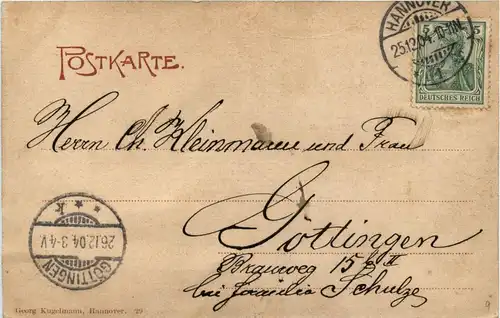 POSTKARTE.
HANNOVER
25.12.04. 10-11N.
5 5
DEUTSCHES REICH
Herrn Ch. Kleinmann und Frau
Göttingen
Brauweg 15 b II
bei Schulze
GÖTTINGEN
26.12.04. 3-4 V.
* k *
Georg Kugelmann, Hannover. 29